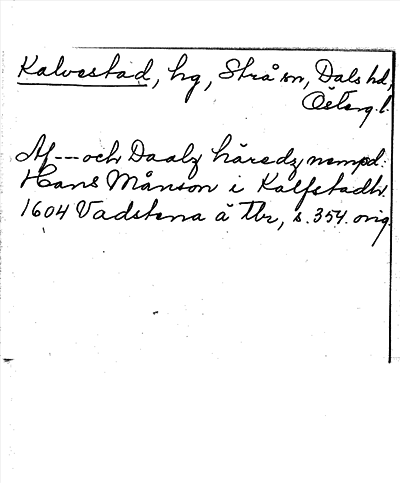 Kalvestad, hg, Strå sn, Dals hd,
Österg. l.
Af --- och Daalz häredz nempd:
Hans Månson i Kalfstadh.
1604 Vadstena å Tbr, s. 354. orig.